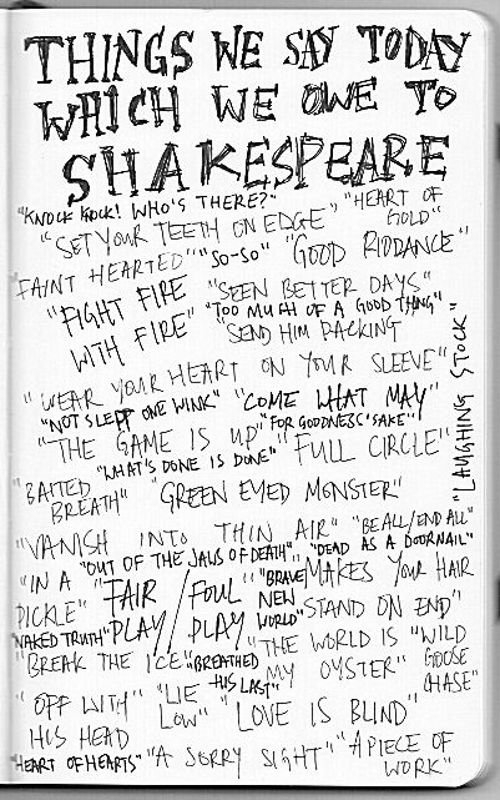 THINGS WE SAY TODAY
WHICH WE OWE TO
SHAKESPEARE
"KNOCK KNOCK! WHO'S THERE?" "HEART OF
GOLD"
"SET YOUR TEETH ON EDGE"
FAINT HEARTED" "SO-SO" "GOOD RIDDANCE"
"FIGHT FIRE
WITH FIRE"
"SEEN BETTER DAYS"
"TOO MUCH OF A GOOD THING"
"SEND HIM PACKING
"WEAR YOUR HEART ON YOUR SLEEVE"
"LAUGHING STOCK"
"NOT SLEPT ONE WINK" "COME WHAT MAY"
"THE GAME IS UP" "FOR GOODNESS' SAKE"
"FULL CIRCLE"
"WHAT'S DONE IS DONE"
"BAITED
BREATH"
"GREEN EYED MONSTER"
"VANISH INTO THIN AIR" "BE ALL/END ALL"
"OUT OF THE JAWS OF DEATH" "DEAD AS A DOORNAIL"
"IN A
PICKLE"
"FAIR
PLAY/
FOUL
PLAY
"BRAVE
NEW
WORLD"
MAKES YOUR HAIR
STAND ON END"
"NAKED TRUTH"
"BREAK THE ICE"
"BREATHED
HIS LAST"
"THE WORLD IS
MY OYSTER"
"WILD
GOOSE
CHASE"
"OFF WITH
HIS HEAD
"LIE
LOW"
"LOVE IS BLIND"
"HEART OF HEARTS" "A SORRY SIGHT" "A PIECE OF
WORK"